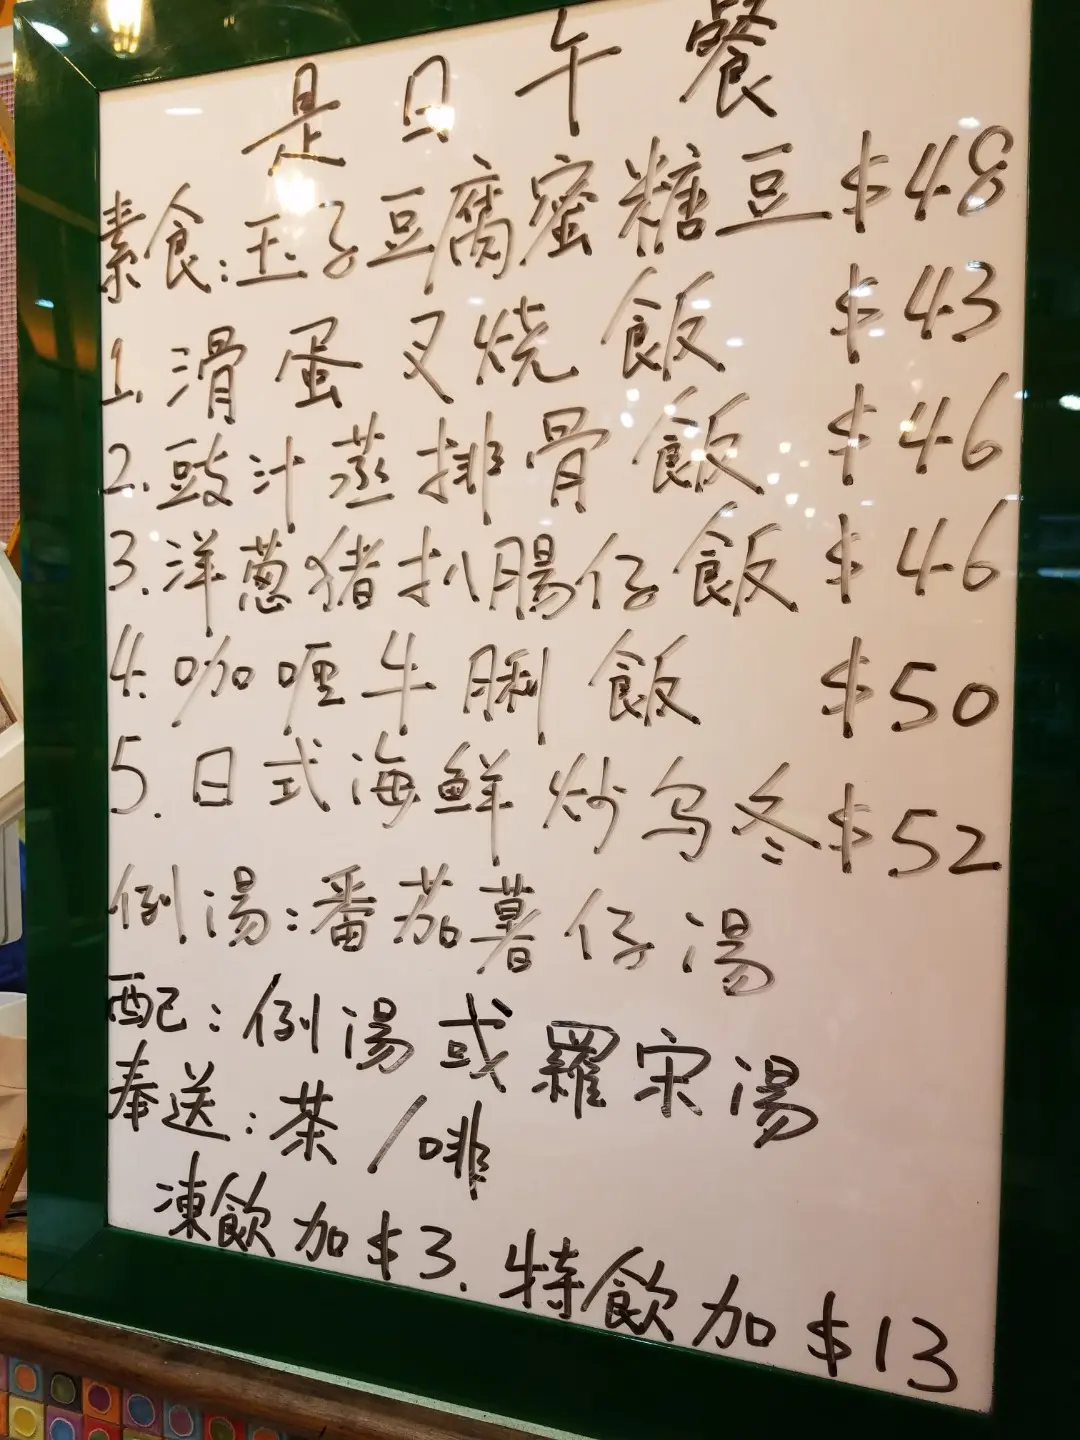 是日午餐
素食:玉子豆腐蜜糖豆 $48
1. 滑蛋叉烧飯 $43
2. 豉汁蒸排骨飯 $46
3. 洋葱猪扒腸仔飯 $46
4. 咖喱牛脷飯 $50
5. 日式海鲜炒乌冬 $52
例湯:番茄薯仔湯
配:例湯或羅宋湯
奉送:茶/啡
凍飲加$3. 特飲加$13